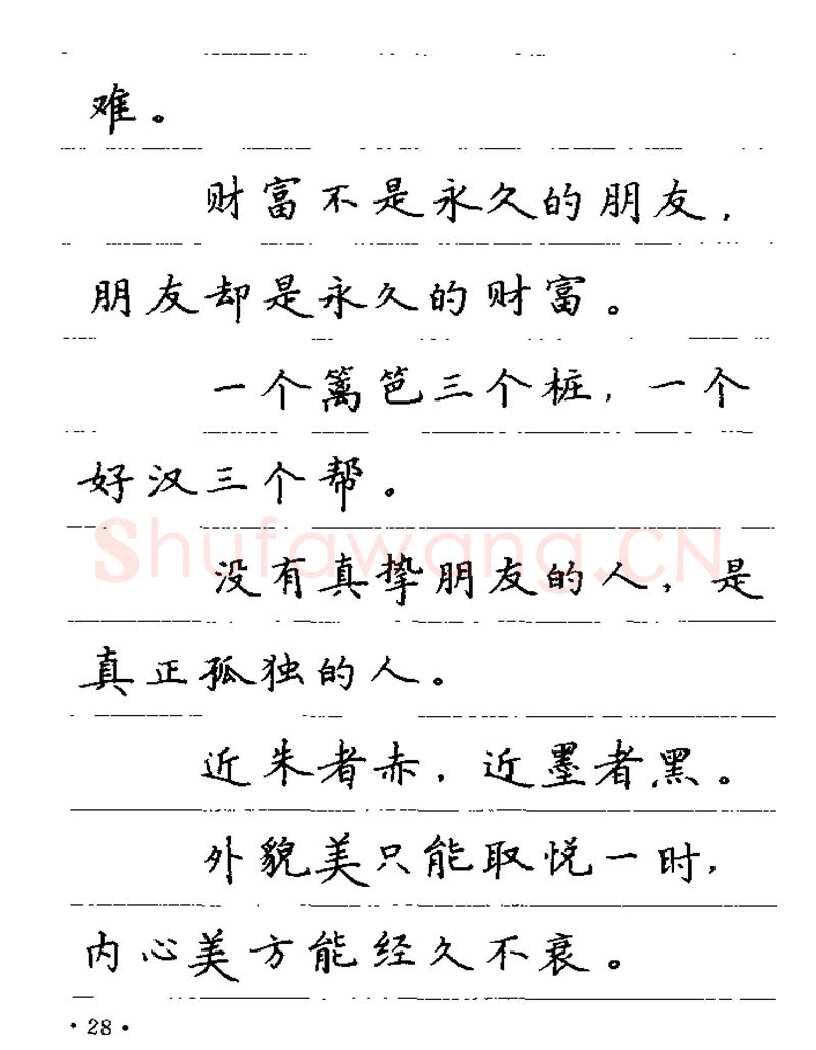 难。
财富不是永久的朋友，
朋友却是永久的财富。
一个篱笆三个桩，一个
好汉三个帮。
shufawang.CN
没有真挚朋友的人，是
真正孤独的人。
近朱者赤，近墨者黑。
外貌美只能取悦一时，
内心美方能经久不衰。
·28·